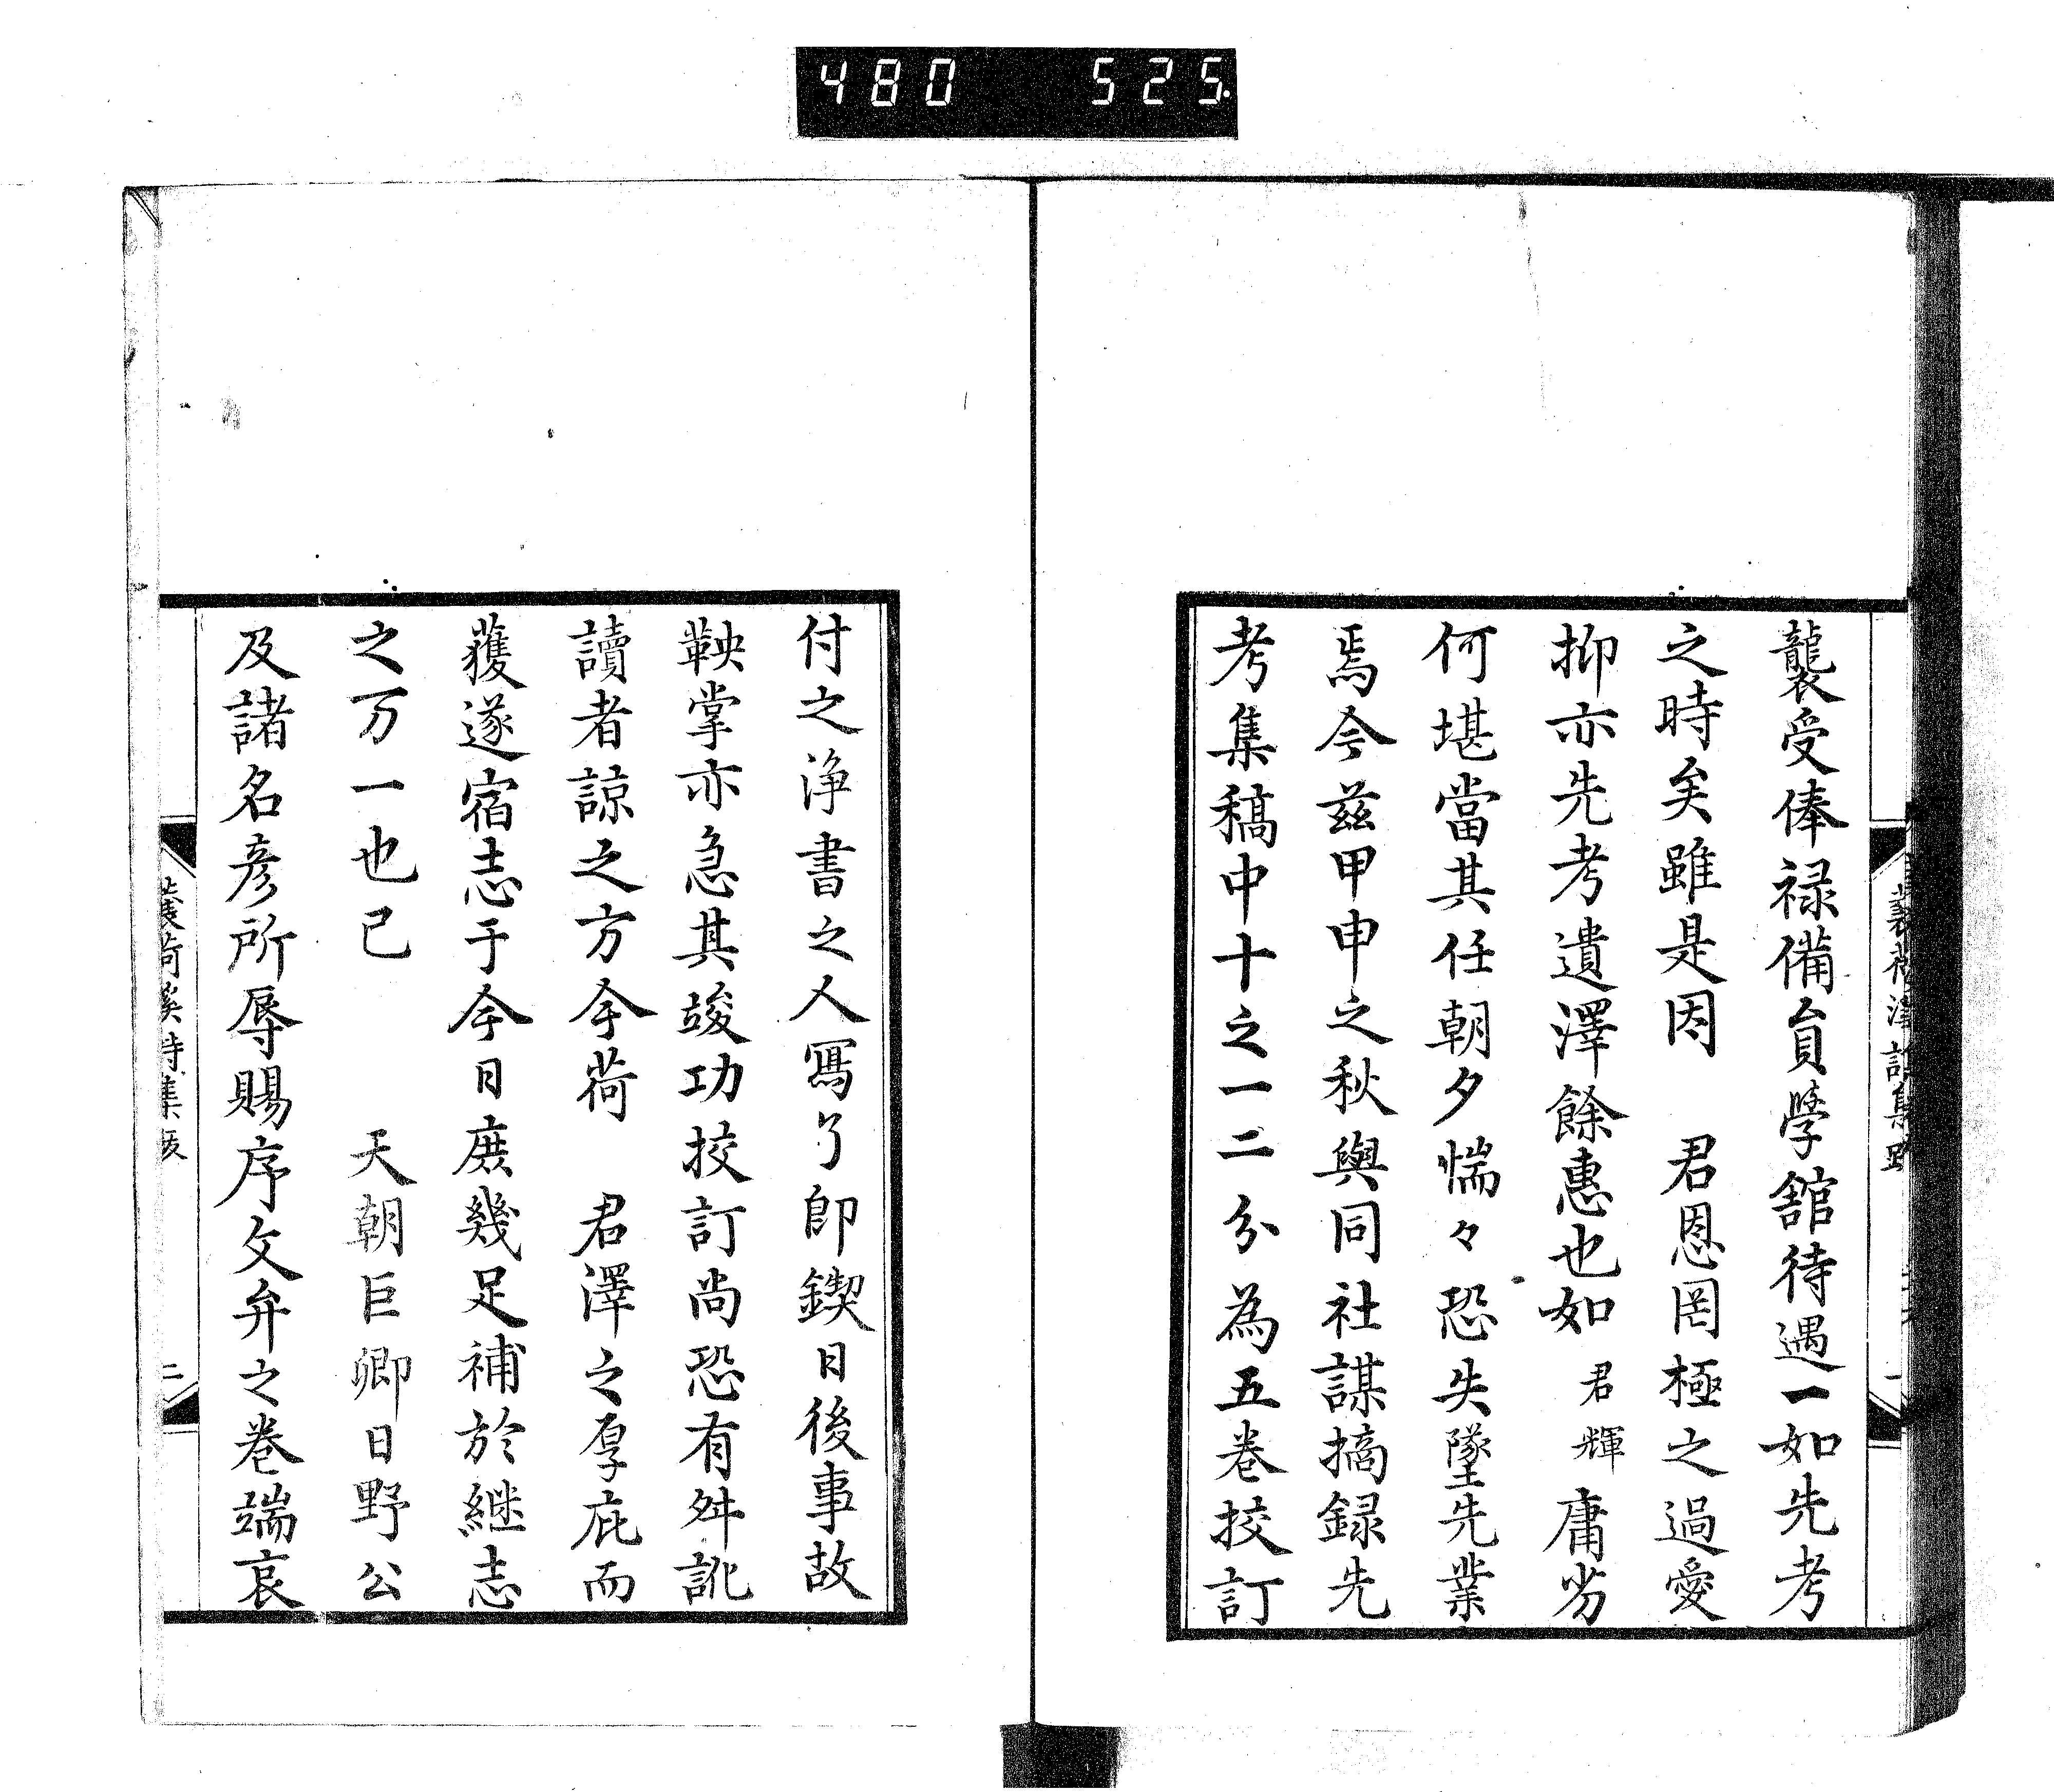 480 525.
襲受俸禄備貟學舘待遇一如先考
之時矣雖是因 君恩罔極之過愛
抑亦先考遺澤餘惠也如君輝庸劣
何堪當其任朝夕惴々恐失墜先業
焉今茲甲申之秋與同社謀摘録先
考集稿中十之一二分為五卷挍訂
付之浄書之人寫了即鍥日後事故
鞅掌亦急其竣功挍訂尚恐有舛訛
讀者諒之方今荷 君澤之厚庇而
獲遂宿志于今日庶幾足補於継志
之万一也已 天朝巨卿日野公
及諸名彦所辱賜序文弁之卷端哀